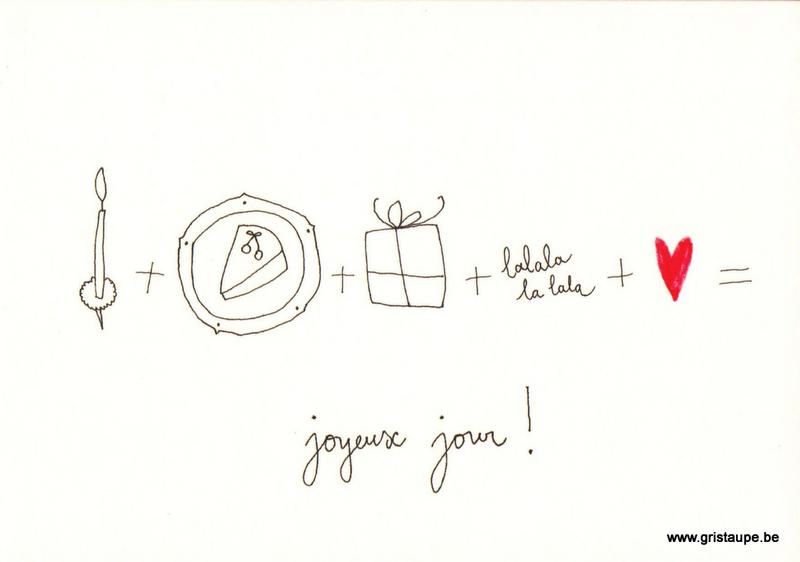 + + + lalala + =
la lala
joyeux jour !
www.gristaupe.be